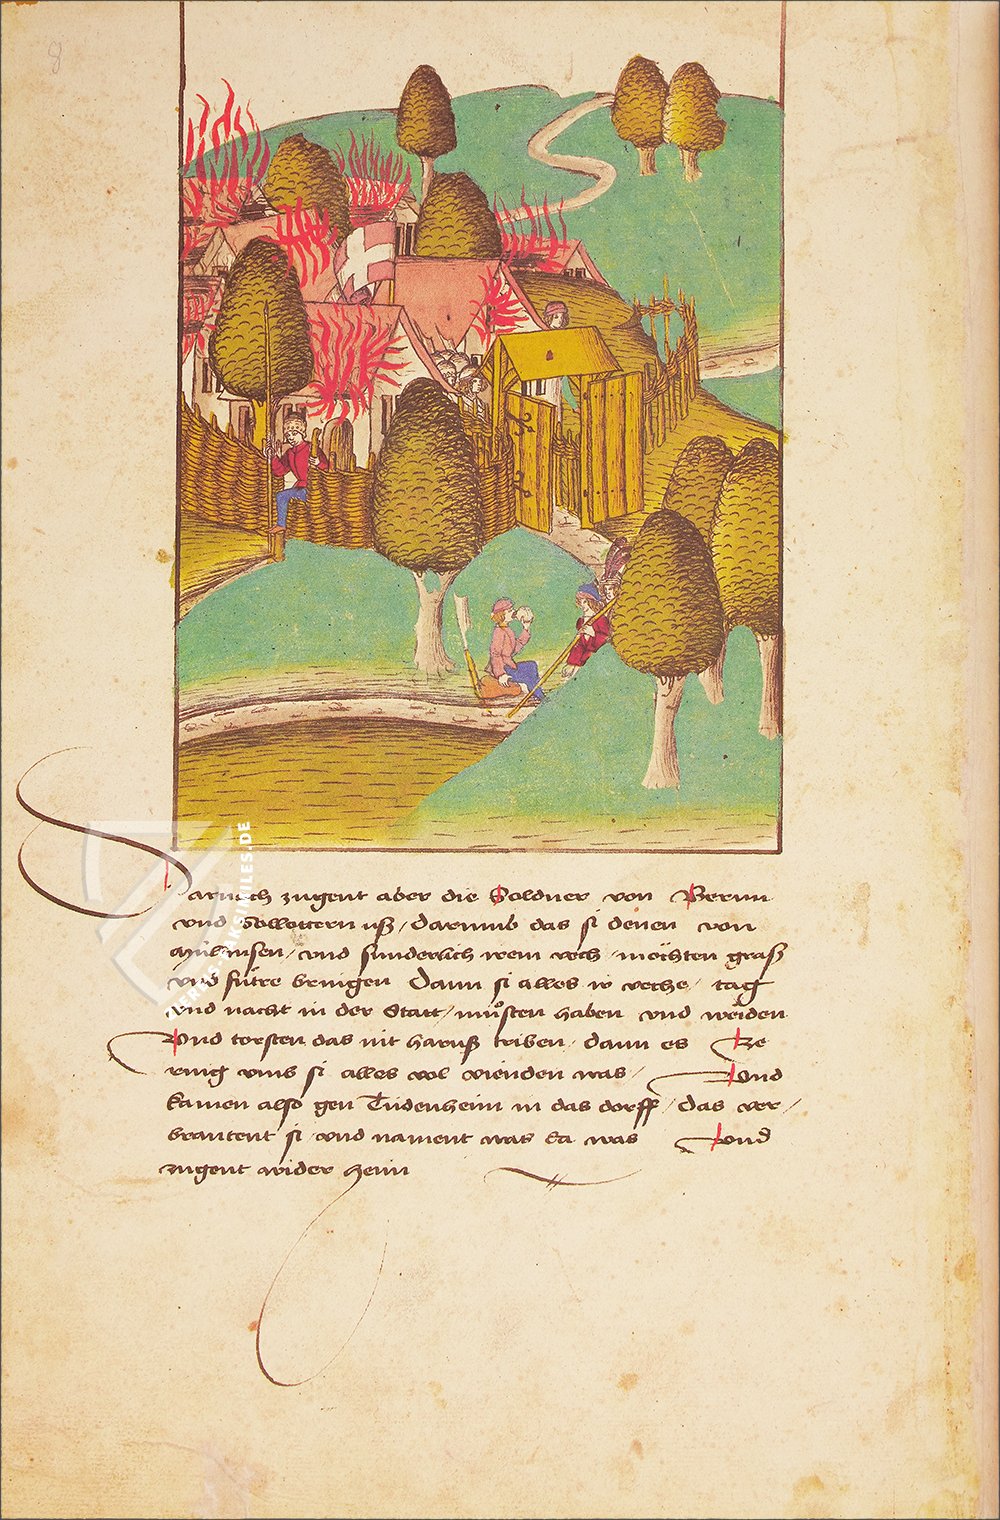 8
Darnach zugent aber die Soldner von Bernn
und Sollottern uß / darumb das si denen von
Mülhusen / und sunderlich irem vech / möchten graß
und fůtre bringen Dann si alles ir veche / tag
und nacht in der Statt / můsten haben und weiden
Und torsten das nit haruß triben / dann es Ze
ring umb si alles vol vienden was / Und
kamen also gen Tüdenheim in das dorff / das ver /
brantent si und nament was da was Und
zugent wider heim